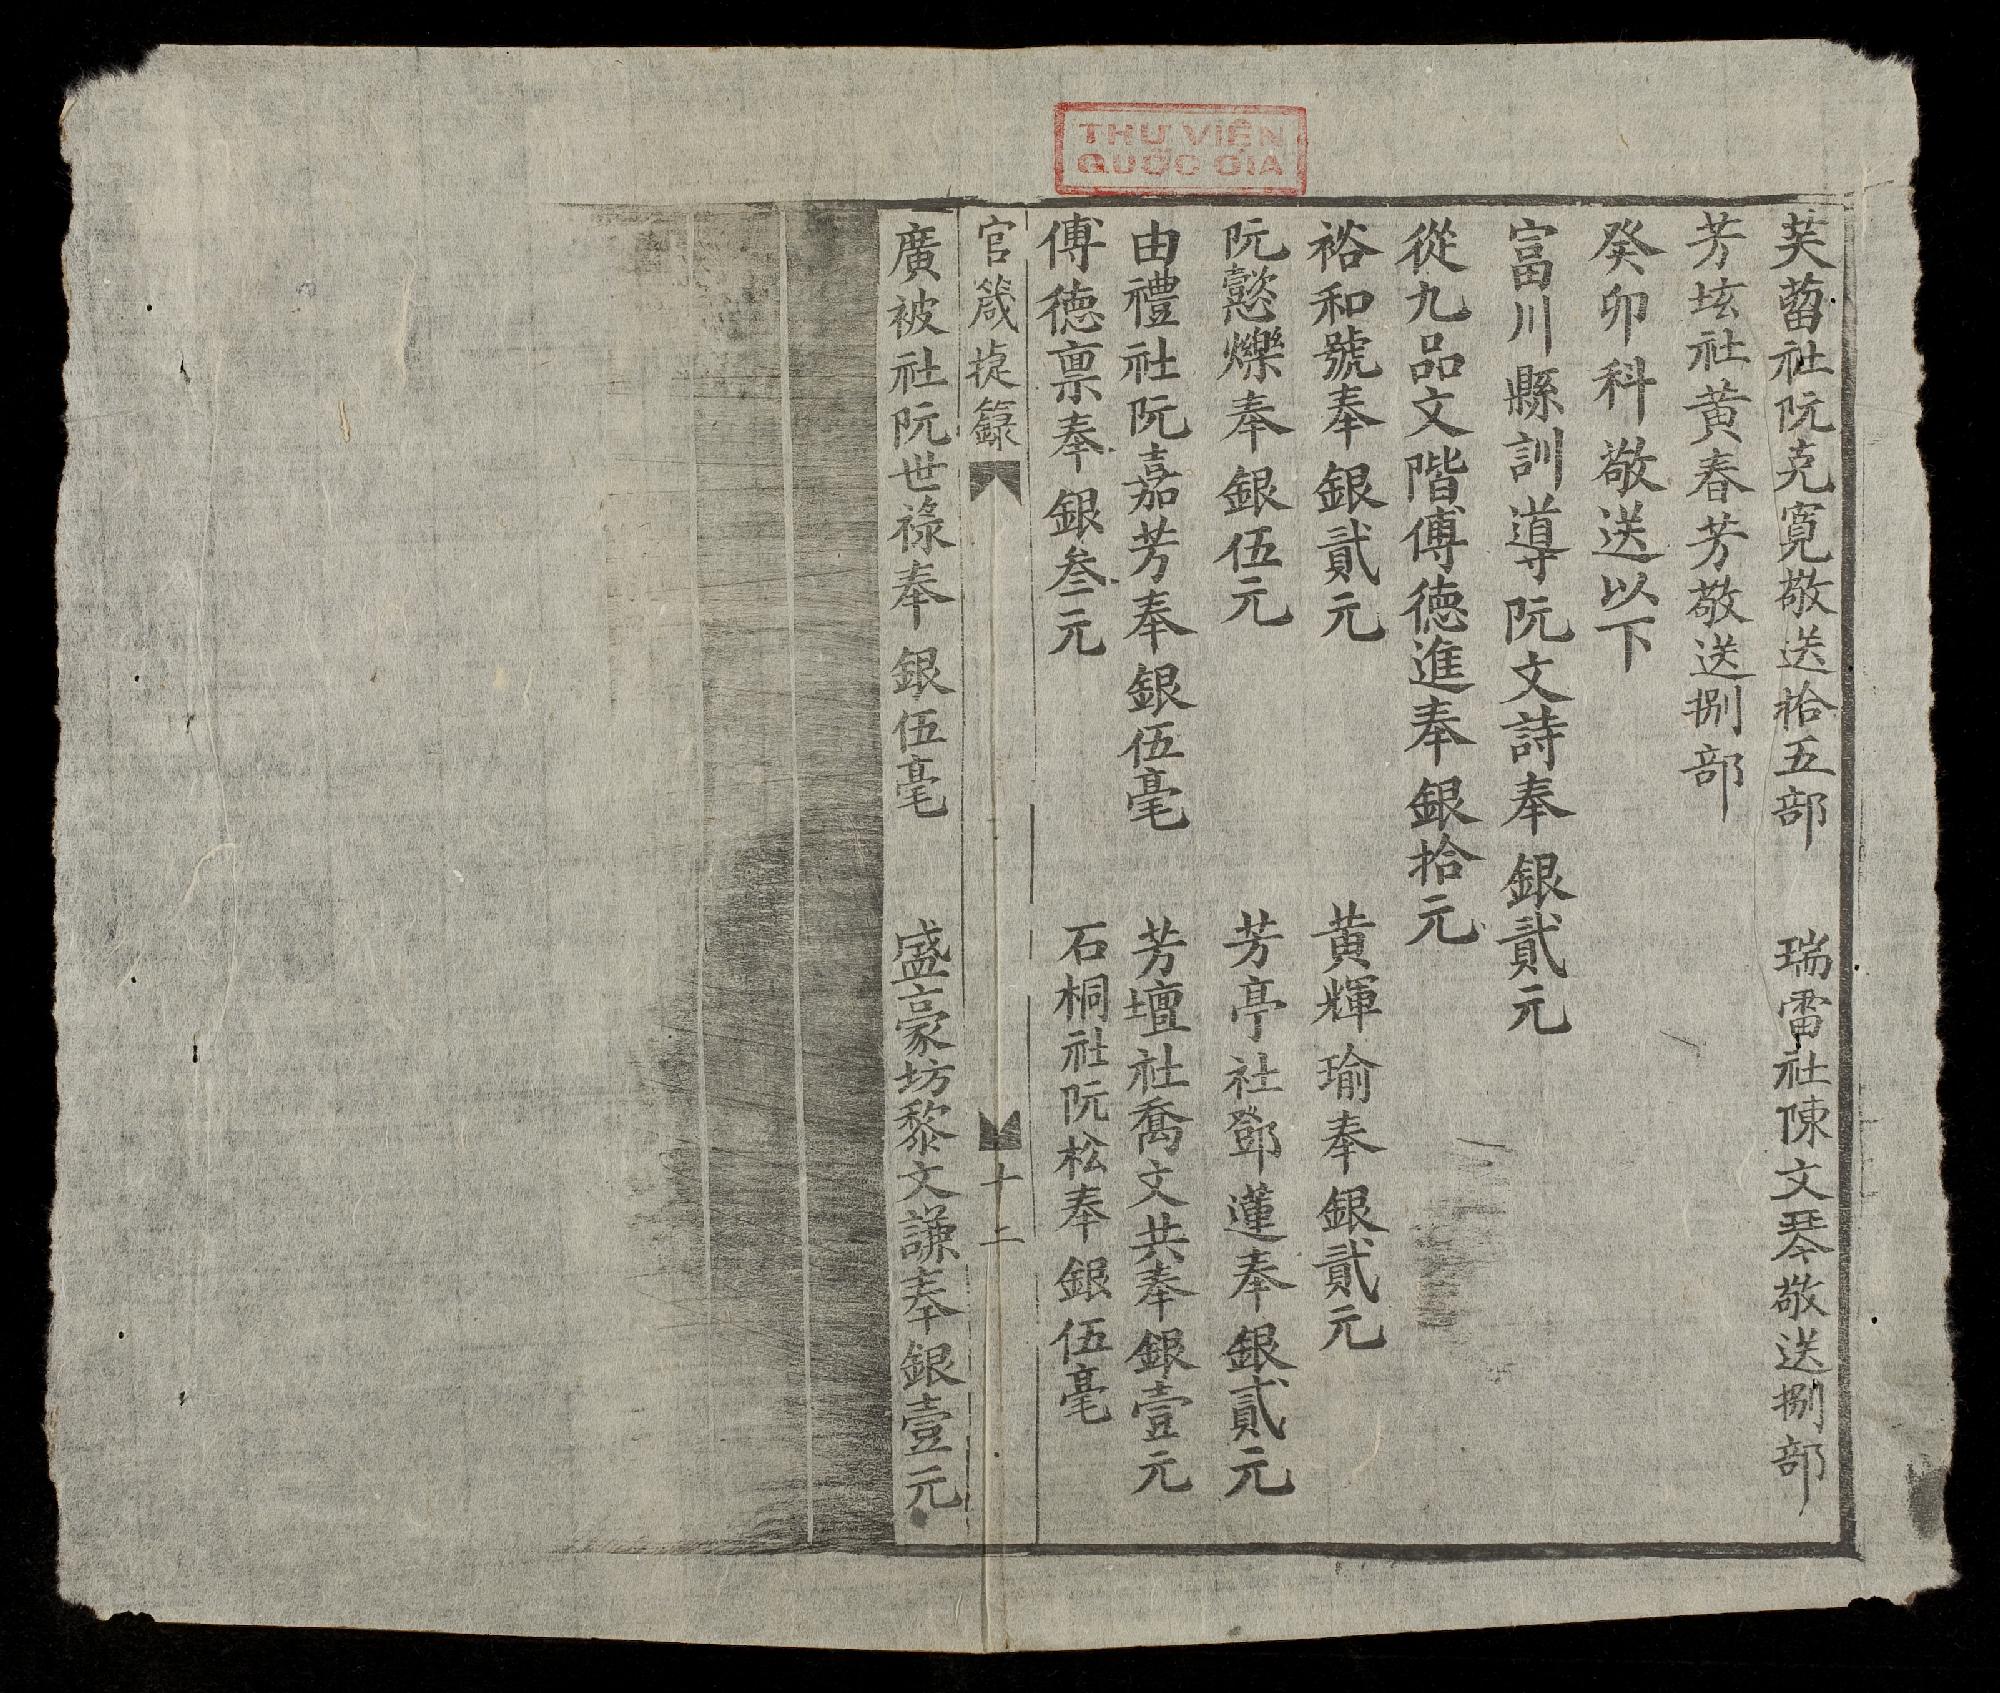 THƯ VIỆN
QUỐC GIA
芙蒥社阮克寬敬送拾五部 瑞雷社陳文琴敬送捌部
芳坛社黄春芳敬送捌部
癸卯科敬送以下
富川縣訓導阮文詩奉銀貳元
從九品文階傅德進奉銀拾元
裕和號奉銀貳元 黄輝瑜奉銀貳元
阮懿爍奉銀伍元 芳亭社鄧蓮奉銀貳元
由禮社阮嘉芳奉銀伍毫 芳壇社喬文共奉銀壹元
傅德禀奉銀叁元 石桐社阮松奉銀伍毫
官箴捷籙 十二
廣被社阮世祿奉銀伍毫 盛豪坊黎文謙奉銀壹元